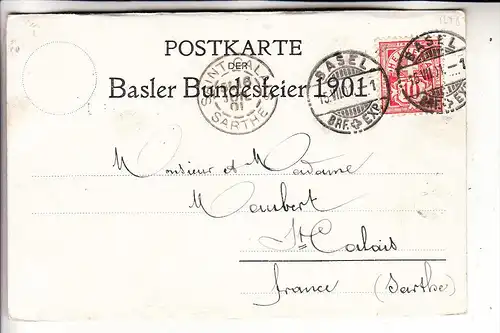 POSTKARTE
DER
Basler Bundesfeier 1901
SAINT
SARTHE
BASEL
BRF. EXP.
BASEL
EXP.
10
Monsieur et Madame
Maubert
St Calais
France (Sarthe)